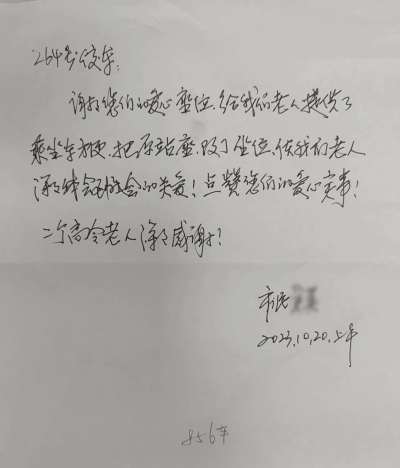 264号公交车：
谢谢您们的爱心座位，给我们老人提供了
乘坐车方便，把原站座，改了坐位，使我们老人
深深体会到社会的关爱！点赞您们的爱心实事！
二个高令老人深深感谢！
市民
2023.10.20.上午
856车